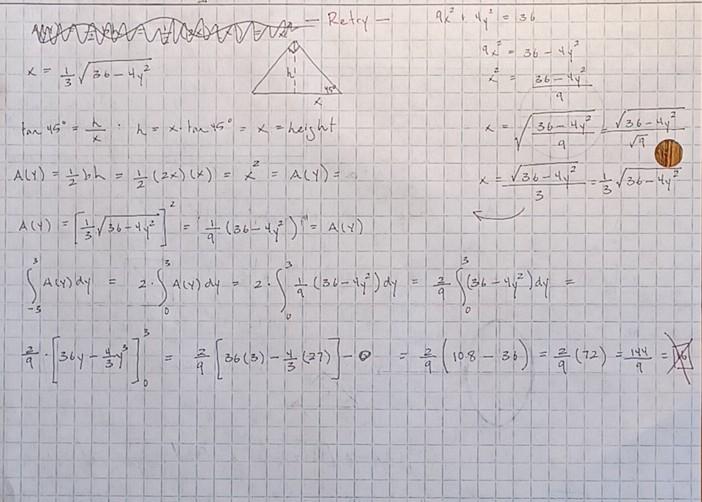 — Retry —
9x² + 4y² = 36
9x² = 36 - 4y²
x² = (36 - 4y²)/9
x = √((36 - 4y²)/9) = √(36 - 4y²)/√9
x = √(36 - 4y²)/3 = 1/3 √(36 - 4y²)
x = 1/3 √(36 - 4y²)
h 45° x
tan 45° = h/x ∴ h = x·tan 45° = x = height
A(y) = 1/2 bh = 1/2 (2x)(x) = x² = A(y) =
A(y) = [1/3 √(36 - 4y²)]² = 1/9 (36 - 4y²) = A(y)
∫₋₃³ A(y) dy = 2·∫₀³ A(y) dy = 2·∫₀³ 1/9 (36 - 4y²) dy = 2/9 ∫₀³ (36 - 4y²) dy =
2/9 · [36y - 4/3 y³]₀³ = 2/9 [36(3) - 4/3 (27)] - 0 = 2/9 (108 - 36) = 2/9 (72) = 144/9 =